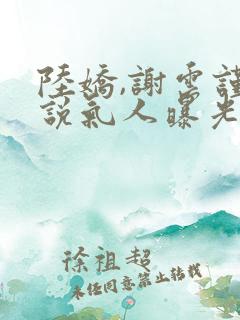 陸嬌,謝雲謹
說氣人曝光
徐祖超
未经同意禁止转载